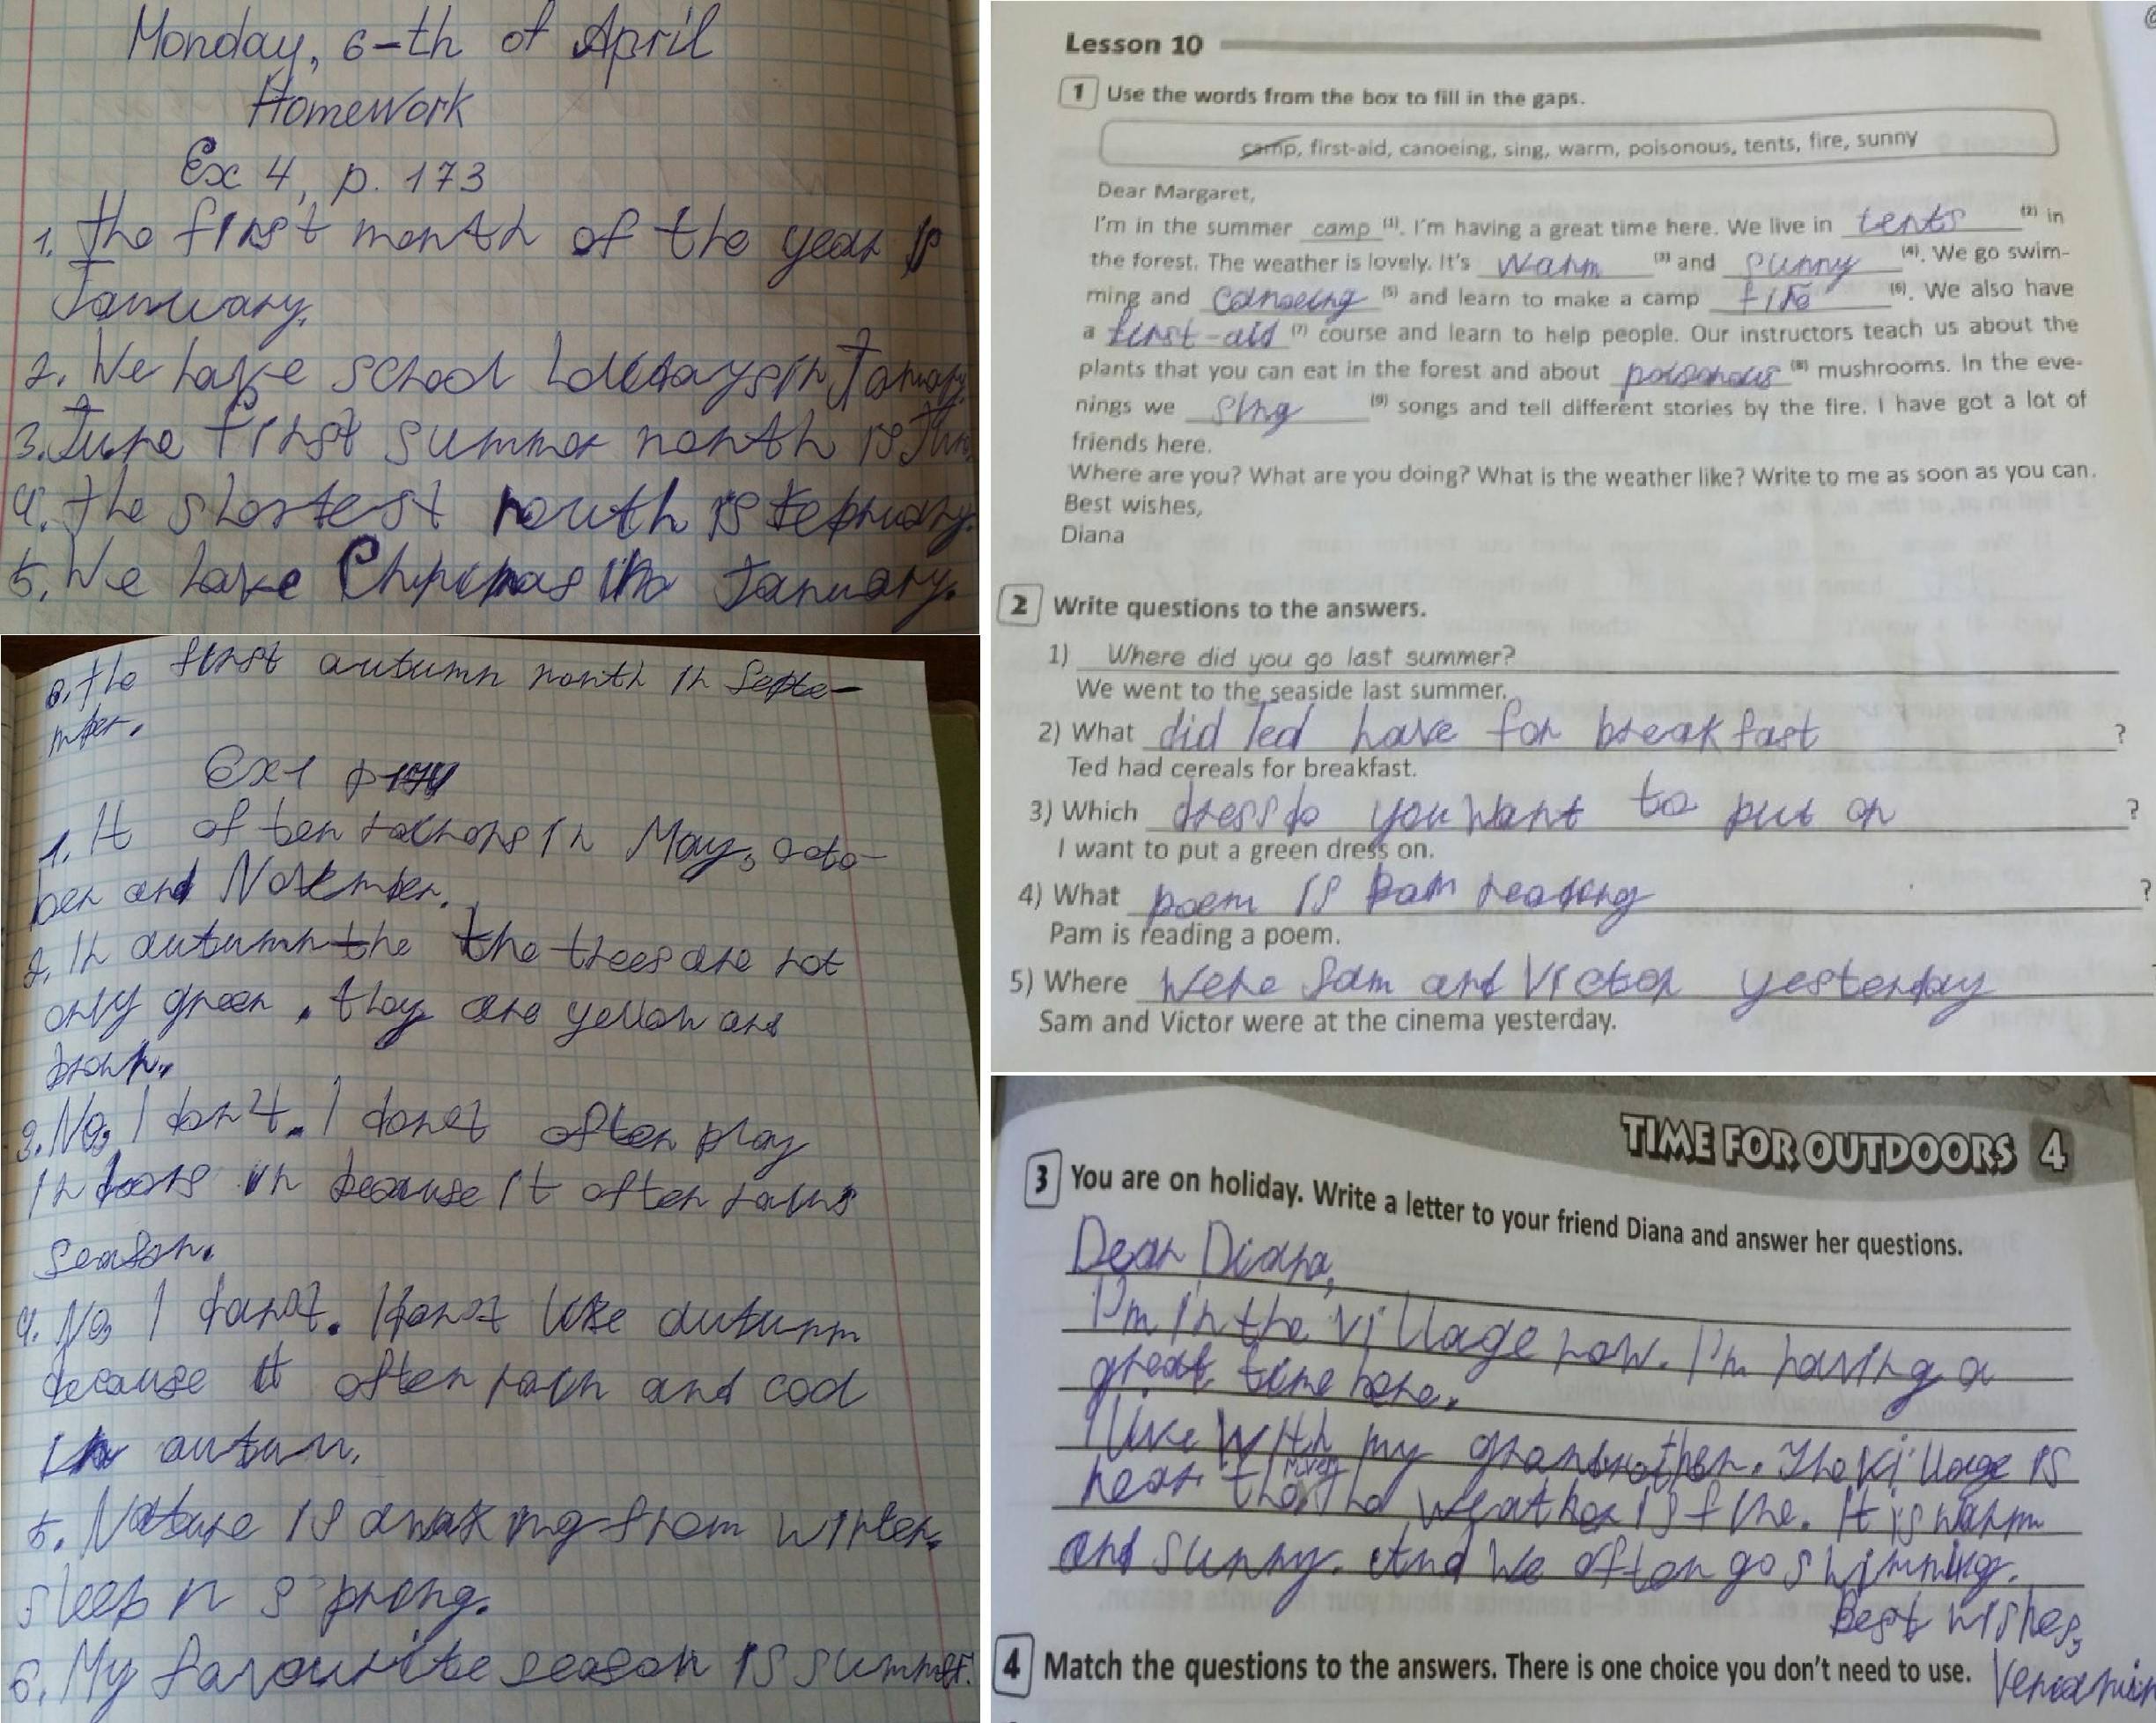 Monday, 6-th of April
Homework
Ex 4, p. 173
1. The first month of the year is
January.
2. We have school holidays in January.
3. June first summer month is June
4. The shortest month is February.
5. We have Christmas in January.
6. The first autumn month in Septe-
mber.
Ex 1 p 174
1. It often rains in May, octo-
ber and November.
2. In autumn the the trees are not
only green, they are yellow and
brown.
3. No, I don't. I don't often play
indoors in because it often rains
season.
4. No, I don't. I don't like autumn
because it often rain and cool
in autum.
5. Nature is awaking from winter
sleep n spring.
6. My favourite season is summer.
Lesson 10
1 Use the words from the box to fill in the gaps.
camp, first-aid, canoeing, sing, warm, poisonous, tents, fire, sunny
Dear Margaret,
I'm in the summer camp (1). I'm having a great time here. We live in tents (2) in
the forest. The weather is lovely. It's warm (3) and sunny (4). We go swim-
ming and canoeing (5) and learn to make a camp fire (6). We also have
a first-aid (7) course and learn to help people. Our instructors teach us about the
plants that you can eat in the forest and about poisonous (8) mushrooms. In the eve-
nings we sing (9) songs and tell different stories by the fire. I have got a lot of
friends here.
Where are you? What are you doing? What is the weather like? Write to me as soon as you can.
Best wishes,
Diana
2 Write questions to the answers.
1) Where did you go last summer?
We went to the seaside last summer.
2) What did Ted have for breakfast ?
Ted had cereals for breakfast.
3) Which dress do you want to put on ?
I want to put a green dress on.
4) What poem is Pam reading ?
Pam is reading a poem.
5) Where were Sam and Victor yesterday
Sam and Victor were at the cinema yesterday.
TIME FOR OUTDOORS 4
3 You are on holiday. Write a letter to your friend Diana and answer her questions.
Dear Diana,
I'm in the village now. I'm having a
great time here.
I live with my grandmother. The village is
near the river The weather is fine. It is warm
and sunny. And we often go swimming.
Best wishes,
4 Match the questions to the answers. There is one choice you don't need to use.